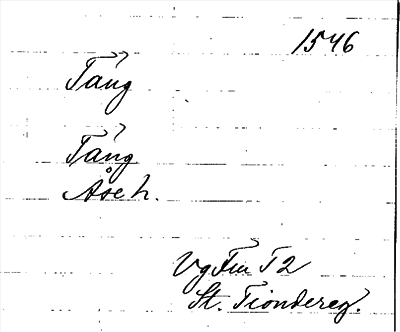 1546
Tång
Tång
Åse h.
Vg Fru T 2
St. Tiondereg.